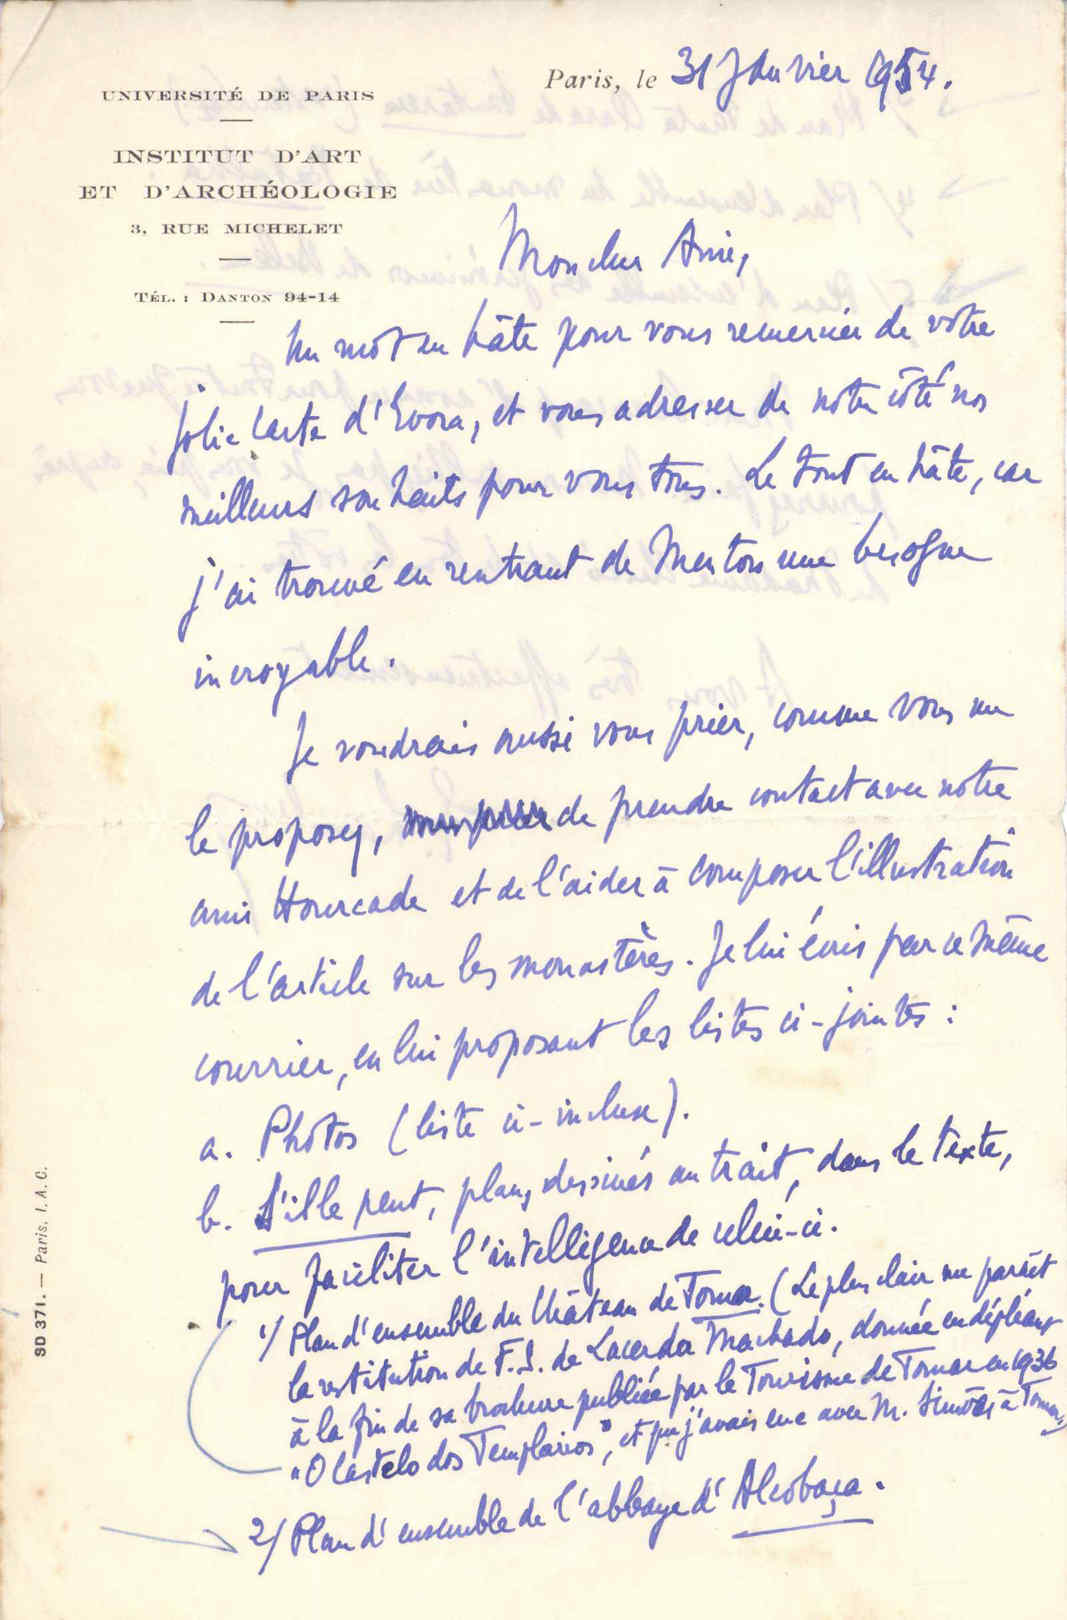 UNIVERSITÉ DE PARIS
INSTITUT D'ART
ET D'ARCHÉOLOGIE
3, RUE MICHELET
TÉL. : DANTON 94-14
Paris, le 31 Janvier 1954.
Mon cher Ami,
Un mot en hâte pour vous remercier de votre
jolie carte d'Evora, et vous adresser de notre côté nos
meilleurs souhaits pour vous tous. Le tout en hâte, car
j'ai trouvé en rentrant de Menton une besogne
incroyable.
Je voudrais aussi vous prier, comme vous me
le proposez, de prendre contact avec notre
ami Hourcade et de l'aider à composer l'illustration
de l'article sur les monastères. Je lui écris par ce même
courrier, en lui proposant les listes ci-jointes :
a. Photos (liste ci-incluse).
b. S'il se peut, plans dessinés au trait, dans le texte,
pour faciliter l'intelligence de celui-ci.
1/ Plan d'ensemble du Château de Tomar. (Le plus clair me paraît
la restitution de F. S. de Lacerda Machado, donnée en dépliant
à la fin de sa brochure publiée par le Tourisme de Tomar en 1936
"O Castelo dos Templarios", et que j'avais eue avec M. Simões à Tomar
2/ Plan d'ensemble de l'abbaye d'Alcobaça.
SD 371. — Paris. I. A. C.